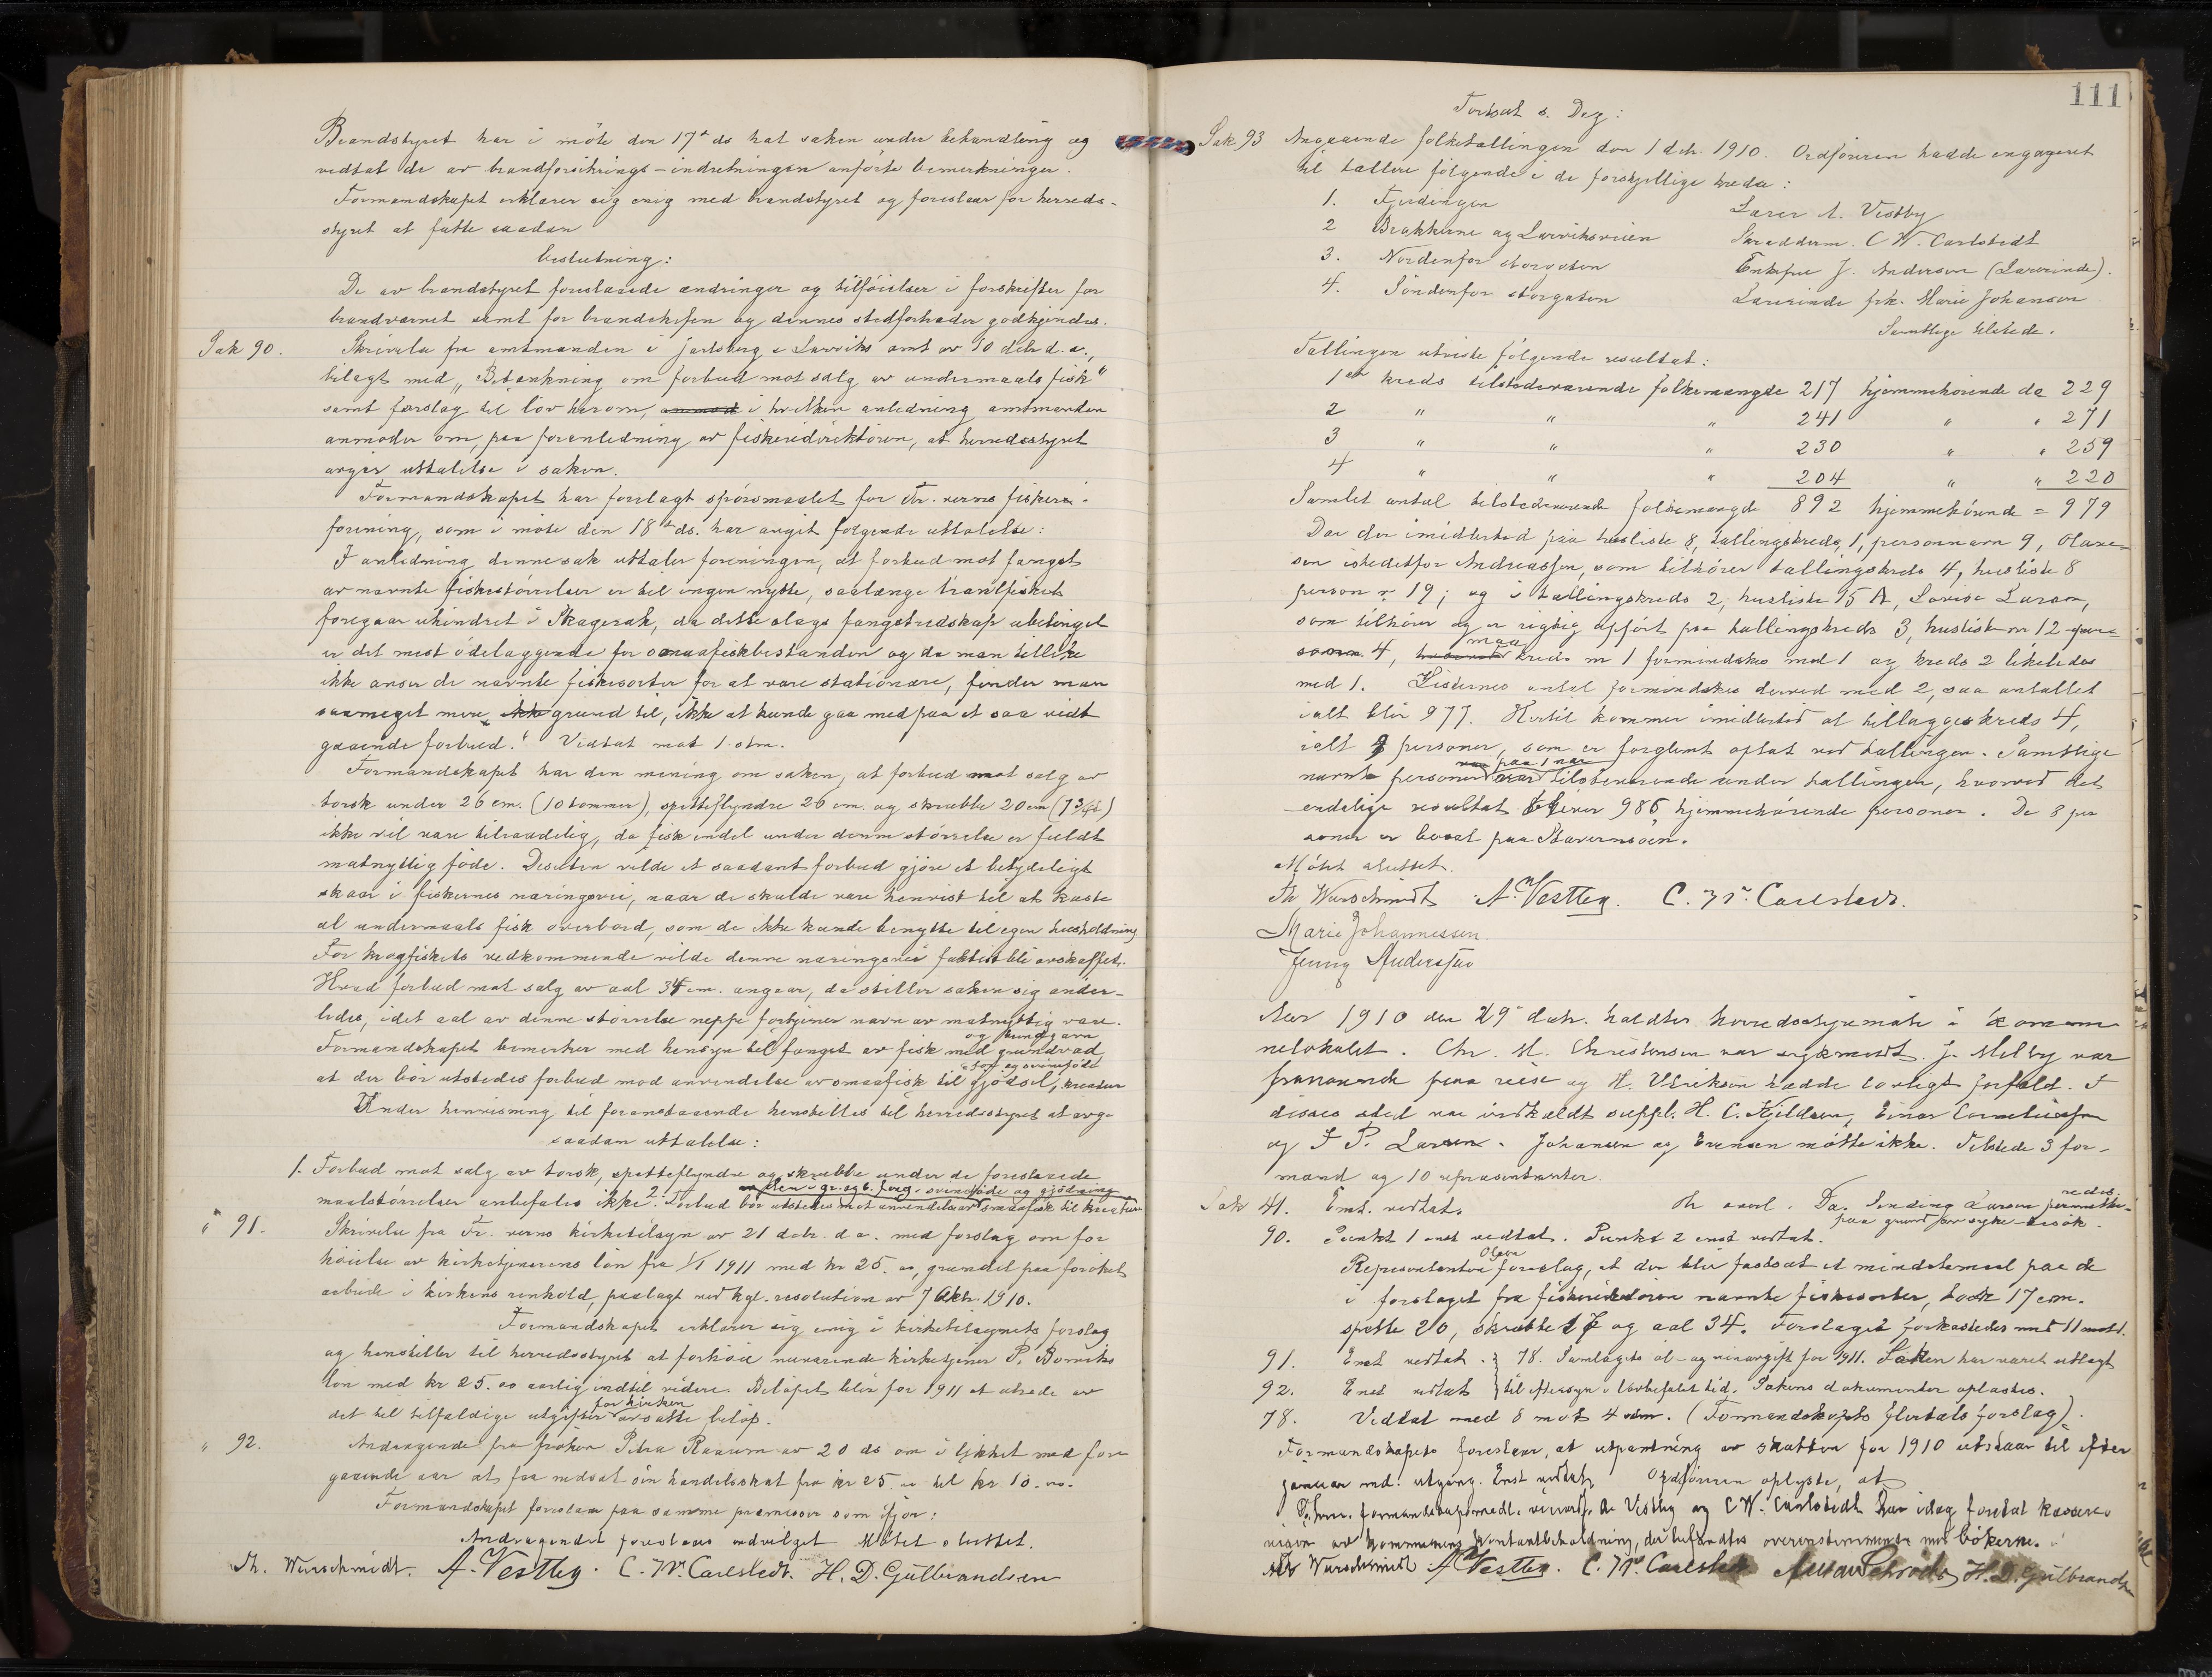 Brandstyret har i möte den 17de ds hat saken under behandling og
vedtat de av brandforsikrings-indretningen anförte bemerkninger.
Formandskapet erklærer sig enig med brandstyret og foreslaar for herreds-
styret at fatte saadan
beslutning:
De av brandstyret foreslaaede ændringer og tilföielser i forskrifter for
brandværnet samt for brandchefen og dennes stedfortræder godkjendes.
Sak 90. Skrivelse fra amtmanden i Jarlsberg & Larviks amt av 10 debr d.a.,
bilagt med „Betænkning om forbud mot salg av undermaals fisk"
samt forslag til lov herom, i hvilken anledning amtmanden
anmoder om, paa foranledning av fiskeridirektören, at herredsstyret
avgir uttalelse i saken.
Formandskapet har forelagt spörsmaalet for Fr.verns fiskeri-
forening, som i möte den 18de ds. har avgit følgende uttalelse:
I anledning denne sak uttaler foreningen, at forbud mot fangst
av nævnte fiskestörrelser er til ingen nytte, saalænge trawlfisket
foregaar uhindret i Skagerak, da dette slags fangstredskap ubetinget
er det mest ödelæggende for smaafiskbestanden og da man tillike
ikke anser de nævnte fiskesorter for at være stationære, finder man
saameget mere ikke grund til, ikke at kunde gaa med paa et saa vidt
gaaende forbud." Vedtat mot 1 stm.
Formandskapet har den mening om saken, at forbud mot salg av
torsk under 26 cm. (10 tommer), spetteflyndre 26 cm. og skrubbe 20 cm
ikke vil være tilraadelig, da fisk endel under denne störrelse er fuldt
matnyttig föde. Desuten vilde et saadant forbud gjöre et betydeligt
skaar i fiskernes næringsvei, naar de skulde være henvist til at kaste
al undermaals fisk overbord, som de ikke kunde benytte til egen husholdning
For krogfiskets vedkommende vilde denne næringsvei faktisk bli avskaffet.
Hvad forbud mot salg av aal 34 cm. angaar, da stiller saken sig ander-
ledes, idet aal av denne störrelse neppe fortjener navn av matnyttig vare.
Formandskapet bemerker med hensyn til fangst av fisk med grundvad og
at der bör utstedes forbud mod anvendelse av smaafisk til gjödsel, kreatur
for og svineföde
Under henvisning til foranstaaende henstilles til herredsstyret at avgi
saadan uttalelse:
1. Forbud mot salg av torsk, spetteflyndre og skrubbe under de foreslaaede
maalstörrelser anbefales ikke. 2. Forbud bör utstedes mot anvendelse av smaafisk til kreatur
svineföde og gjödning
" 91. Skrivelse fra Fr. verns kirketilsyn av 21 debr. d.a. med forslag om for
höielse av kirketjenerens lön fra 1/1 1911 med kr 25.00, grundet paa foröket
arbeide i kirkens renhold, paalagt ved kgl. resolution av 7 1910.
Formandskapet erklærer sig enig i kirketilsynets forslag
og henstiller til herredsstyret at forhöie nuværende kirketjener P. 
lön med kr 25.00 aarlig indtil videre. Belöpet blir for 1911 at utrede av
det til tilfældige utgifter for kirken avsatte belöp.
" 92. Andragende fra fröken Petra Raaum av 20 ds om i likhet med fore
gaaende aar at faa nedsat sin handelsskat fra kr 25.00 til kr 10.00.
Formandskapet foreslaar paa samme præmisser som ifjor:
Andragendet foreslaaes indvilget Mötet sluttet.
Th. Wurschmidt. A. Vestby. C. W. Carlstedt. H. D. Gulbrandsen
111
Fortsat s. Dag:
Sak 93 Angaaende folketællingen den 1 debr. 1910. Ordföreren hadde engageret
til tællere følgende i de forskjellige kredse:
1. Fjerdingen Lærer A. Vestby
2 Brakkerne og Larviksveien Skrædderm. C W. Carlstedt
3. Nordenfor storgaten Enkefru J. Andersen (Lærerinde).
4. Söndenfor storgaten Lærerinde frk. Marie Johansen
Samtlige tilstede.
Tællingen utviste følgende resultat:
1ste kreds tilstedeværende folkemængde 217 hjemmehörende do 229
2 " " " 241 " " 271
3 " " " 230 " " 259
4 " " " 204 " " 220
Samlet antal tilstedeværende folkemængde 892 hjemmehörende = 979
Da der imidlertid paa husliste 8, tællingskreds 1, personnavn 9, 
sen istedetfor Andreassen, som tilhörer tællingskreds 4, husliste 8
person nr 19; og i tællingskreds 2, husliste 15 A, Lovise Larsen,
som tilhörer og er rigtig opfört paa tællingskreds 3, husliste nr 12
4, maa kreds nr 1 formindskes med 1 og kreds 2 likeledes
med 1. Listernes antal formindskes derved med 2, saa antallet
ialt blir 977. Hertil kommer imidlertid at tillægges kreds 4,
ialt personer, som er forglemt optat ved tællingen. Samtlige
nævnte personer paa 1 nær tilstedeværende under tællingen, hvorved det
endelige resultat blir 985 hjemmehörende personer. De 8 per
soner er bosat paa Stavernsöen.
Mötet sluttet.
Th Wurschmidt A. Vestby. C. W. Carlstedt.
Marie Johannessen.
Jenny Andersen
Aar 1910 den 29 debr. holdtes herredsstyremöte i kommu
nelokalet. Chr. M. Christensen var sykmeldt. J. Melby var
fraværende paa reise og H. Eriksen hadde lovligt forfald. I
disses sted var indkaldt suppl. H. C. Kjeldsen, Einar Corneliussen
og I P. Larsen. Johansen og Evensen mötte ikke. Tilstede 3 for-
mænd og 10 repræsentanter.
Sak 41. Enst. vedtat. Larsen permitte-
redes paa grund av syke-besök.
90. Punkt 1 enst vedtat. Punkt 2 enst vedtat.
Representanten Olsens forslag, at der blir fastsat et mindstemaal paa de
i forslaget fra fiskeridirektören nævnte fiskesorter, torsk 17 cm.
spætte 20, skrubbe 17 og aal 34. Forslaget forkastedes med 11 mot 1.
91. Enst vedtat. } 78. Samlagets öl- og vinavgift for 1911. Saken har været utlagt
92. Enst vedtat } til eftersyn i lovbefalet tid. Sakens dokumenter oplæstes.
78. Vedtat med 8 mot 4 stm. (Formandskapets flertals forslag).
Formandskapets foreslaar, at utpantning av skatten for 1910 utstaar til efter
januar md. utgang. Enst vedtat Ordföreren oplyste, at
formandskapsmedl. A. Vestby og C W. Carlstedt har idag foretat kasserev-
ision av kommunens kontantbeholdning, der befandtes overensstemmende med bökerne.
Th Wurschmidt A. Vestby. C. W. Carlstedt Schröder H. D. Gulbrandsen